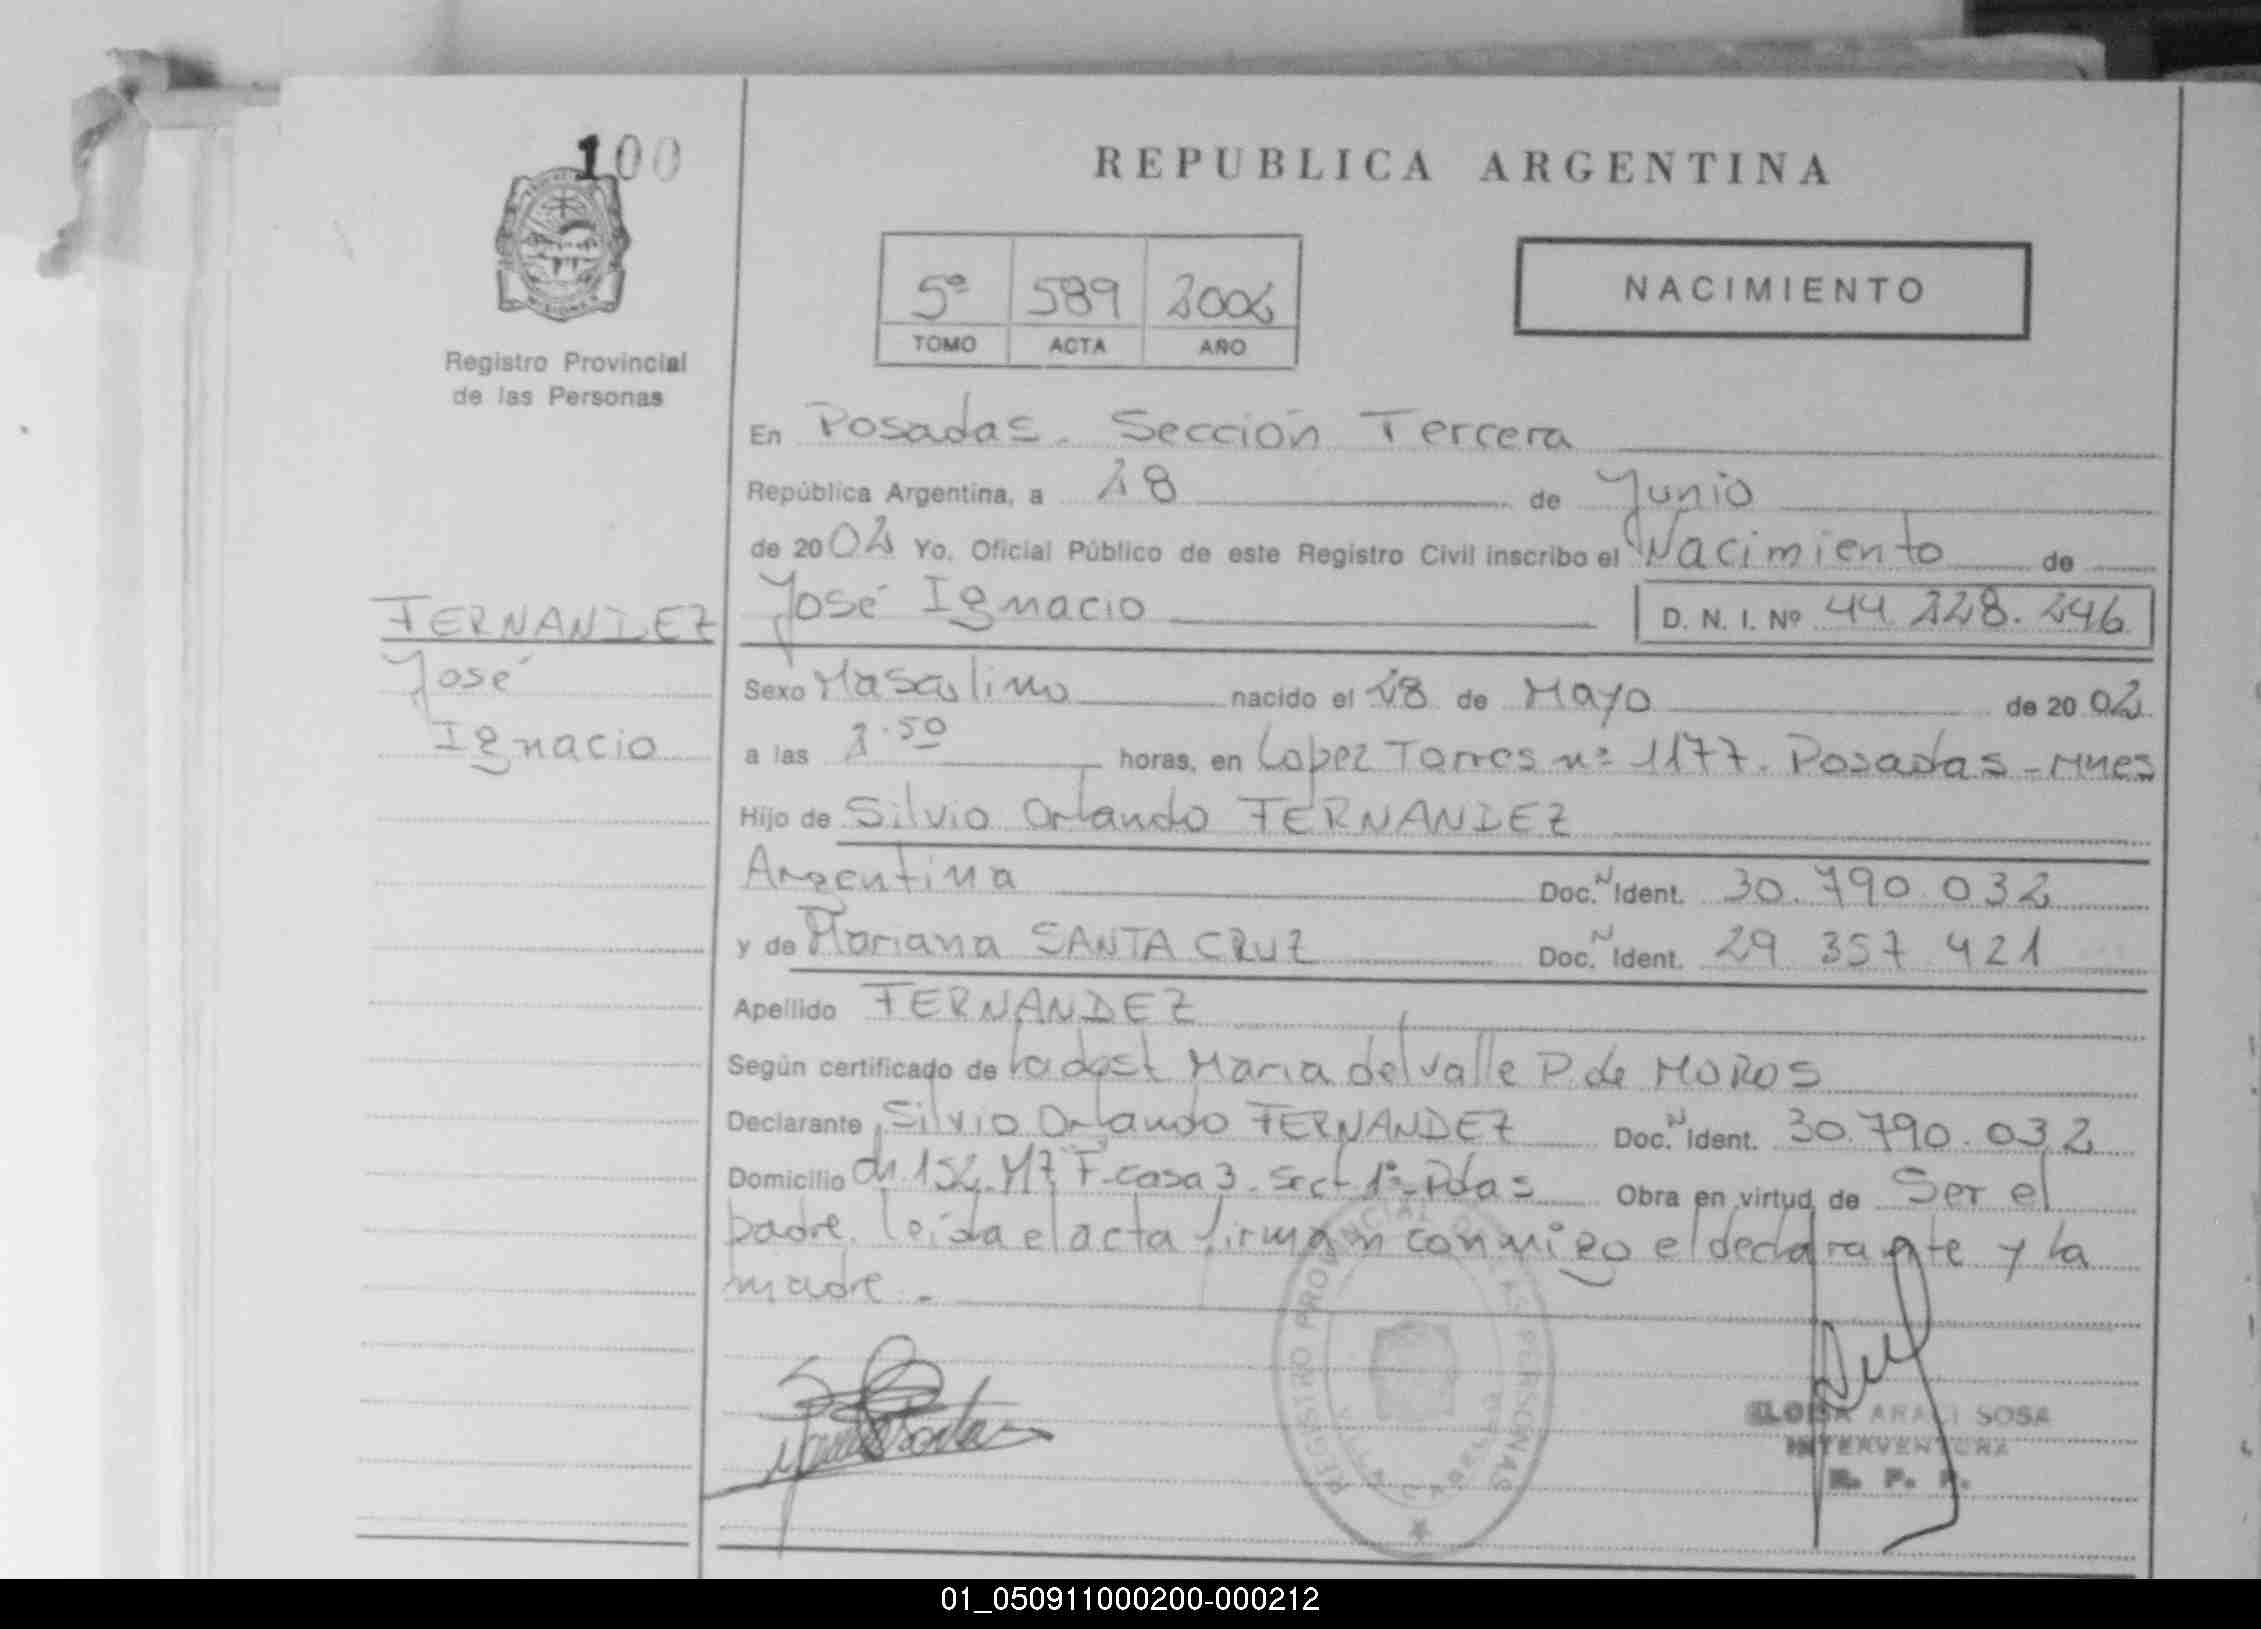 100
REPUBLICA ARGENTINA
5º 589 2002
TOMO ACTA AÑO
NACIMIENTO
Registro Provincial
de las Personas
En Posadas. Sección Tercera
República Argentina, a 28 de Junio
de 2002 Yo, Oficial Público de este Registro Civil inscribo el Nacimiento de
FERNANDEZ
José
Ignacio
José Ignacio D. N. I. Nº 44.228.246
Sexo Masculino nacido el 28 de Mayo de 2002
a las 2.50 horas, en Lopez Torres nº 1177. Posadas - Mnes
Hijo de Silvio Orlando FERNANDEZ
Argentina Doc. N Ident. 30.790.032
y de Mariana SANTA CRUZ Doc. N Ident. 29 357 421
Apellido FERNANDEZ
Según certificado de la obst Maria del Valle P. de MOROS
Declarante Silvio Orlando FERNANDEZ Doc. N Ident. 30.790.032
Domicilio ch 152. Mz F. casa 3. Sect 1º - Pdas Obra en virtud de Ser el
padre. leída el acta firman conmigo el declarante y la
madre.-
REGISTRO PROVINCIAL DE LAS PERSONAS
VILLA CABELLO
ARACI SOSA
INTERVENTORA
R. P. P.
01_050911000200-000212